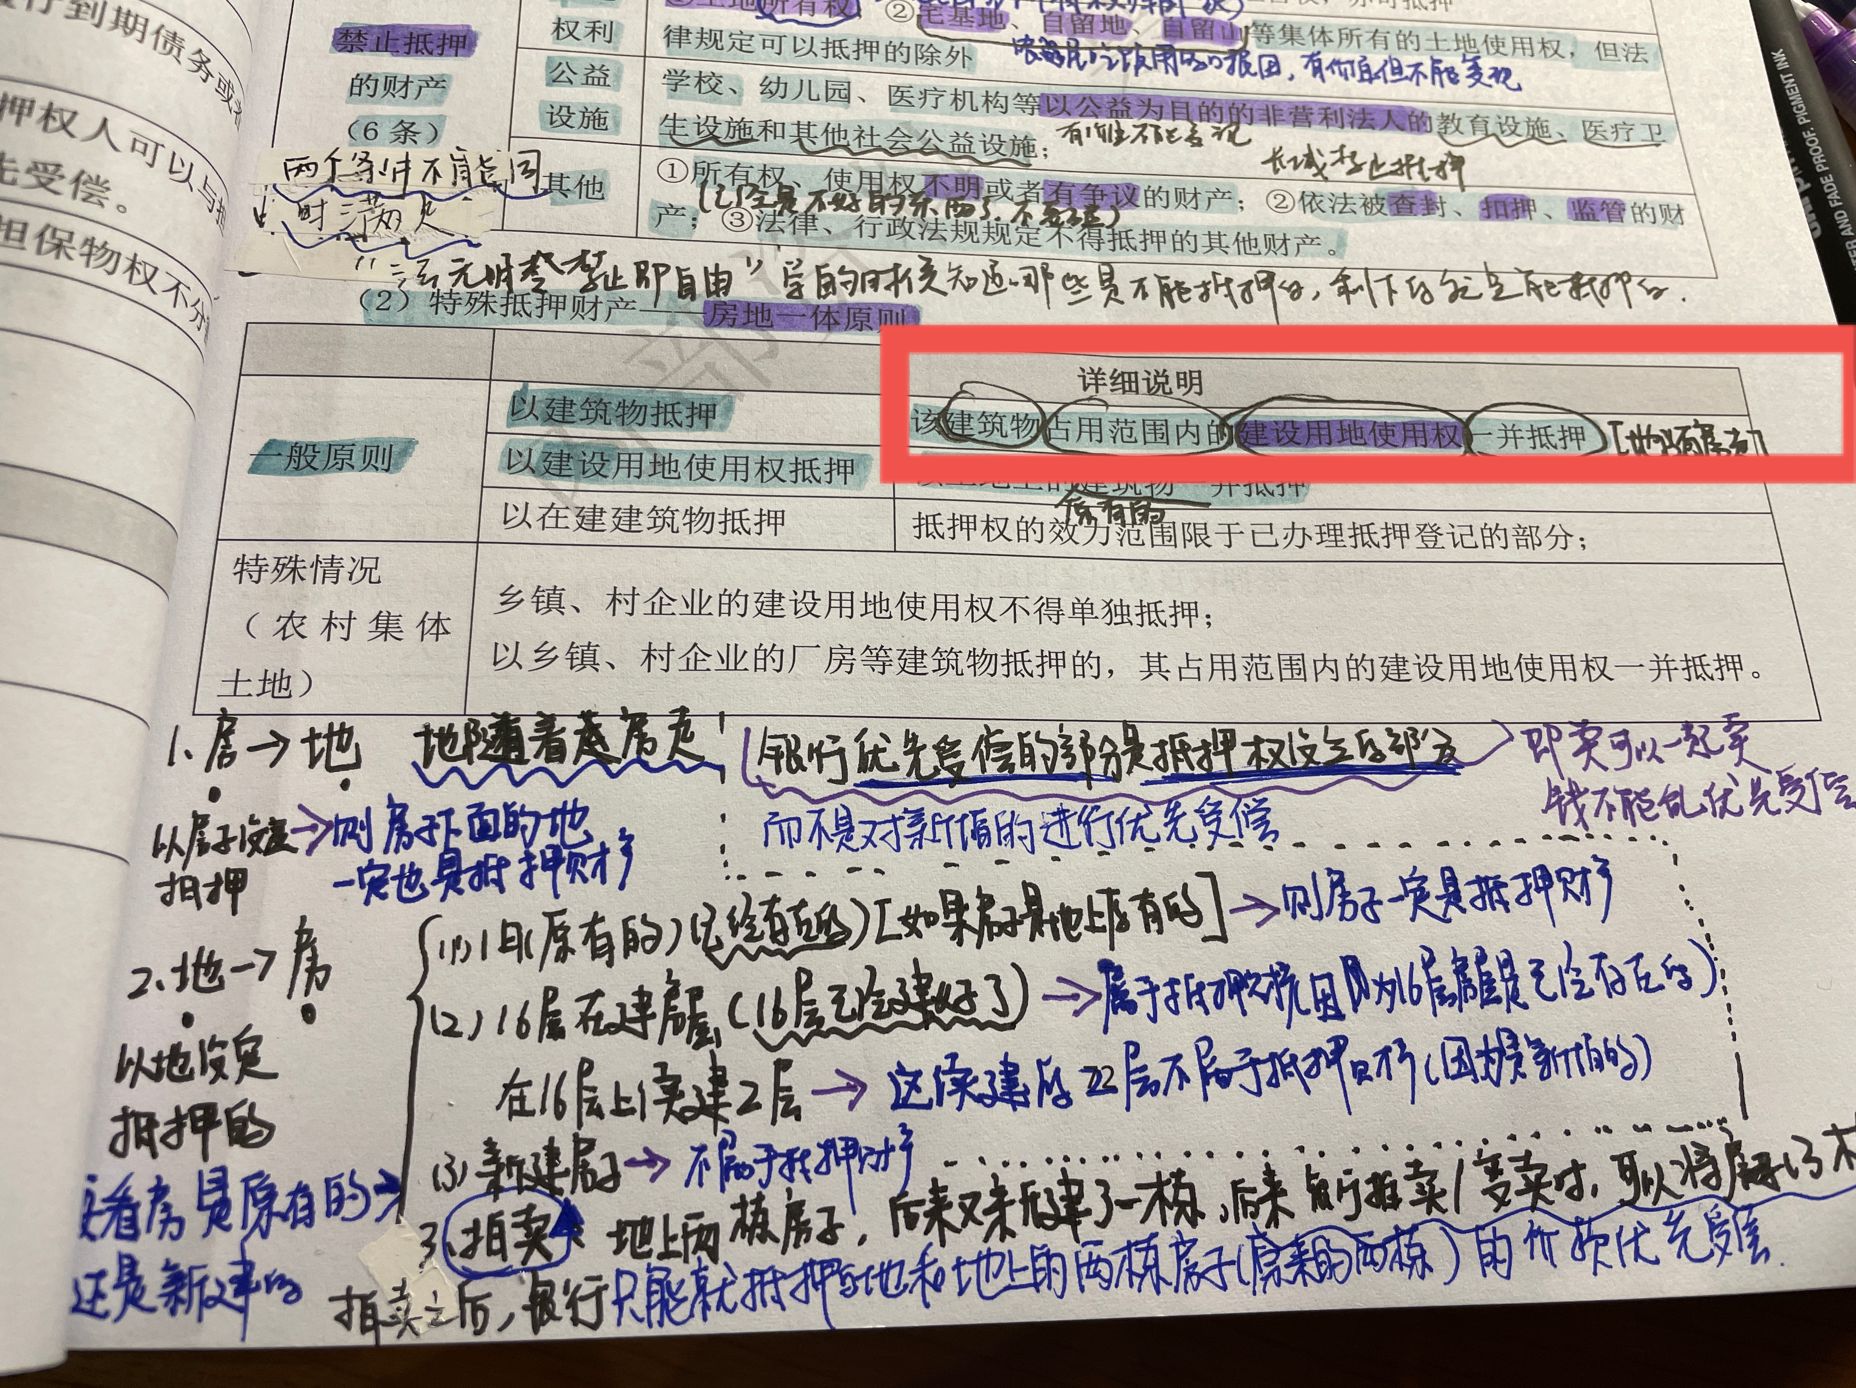 行到期债务或
押权人可以与
先受偿。
担保物权不分
禁止抵押
的财产
（6 条）
权利
①土地所有权；②宅基地、自留地、自留山等集体所有的土地使用权，但法
律规定可以抵押的除外
有价值但不能变现
公益
设施
学校、幼儿园、医疗机构等以公益为目的的非营利法人的教育设施、医疗卫
生设施和其他社会公益设施；
有价值不能变现
长城禁止抵押
两个条件不能同
时满足
其他
①所有权、使用权不明或者有争议的财产；②依法被查封、扣押、监管的财
产；③法律、行政法规规定不得抵押的其他财产。
禁止即自由" 学的时候知道哪些是不能抵押的，剩下的就是能抵押的.
（2）特殊抵押财产——房地一体原则
详细说明
一般原则
以建筑物抵押
该建筑物占用范围内的建设用地使用权一并抵押 [地随房走]
以建设用地使用权抵押
以土地上的建筑物一并抵押
原有的
以在建建筑物抵押
抵押权的效力范围限于已办理抵押登记的部分；
特殊情况
（农村集体
土地）
乡镇、村企业的建设用地使用权不得单独抵押；
以乡镇、村企业的厂房等建筑物抵押的，其占用范围内的建设用地使用权一并抵押。
1. 房→地 地随着房走
以房子设定抵押→则房子下面的地
一定也是抵押财产
银行优先受偿的部分是抵押权设立的部分
而不是对新值的进行优先受偿
即卖可以一起卖
钱不能乱优先受偿
2. 地→房
以地设定
抵押的
要看房是原有的→
还是新建的
(1) 旧(原有的)(已经存在的)[如果房子是地上原有的]→则房子一定是抵押财产
(2) 16层在建房屋(16层已经建好了)→属于抵押财产因为16层房屋是已经存在的)
在16层上续建2层→这续建的2层不属于抵押财产(因为是新值的)
(3) 新建房子→不属于抵押财产
3. 拍卖 地上两栋房子，后来又来了建了一栋，后来银行拍卖/变卖时，可以将房子(3栋
拍卖之后，银行只能就抵押的地和地上的两栋房子(原来的两栋)的价款优先受偿.